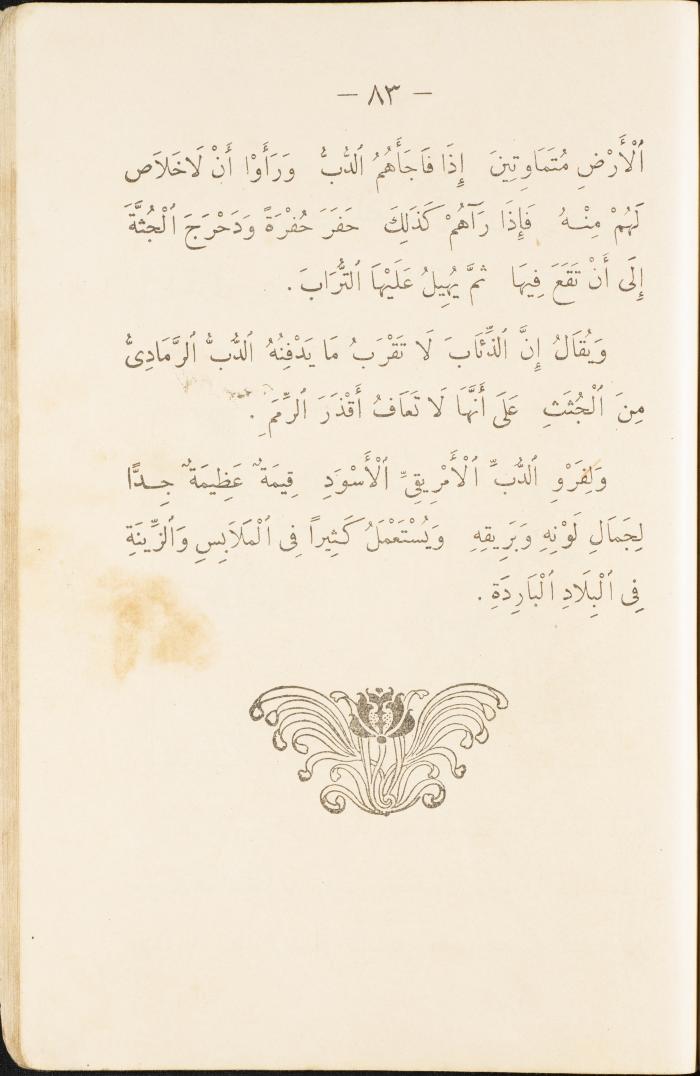 — ٨٣ —
ٱلْأَرْضِ مُتَمَاوِتِينَ إِذَا فَاجَأَهُمُ ٱلدُّبُّ وَرَأَوْا أَنْ لَاخَلَاصَ
لَهُمْ مِنْهُ فَإِذَا رَآهُمْ كَذٰلِكَ حَفَرَ حُفْرَةً وَدَحْرَجَ ٱلْجُثَّةَ
إِلَى أَنْ تَقَعَ فِيهَا ثمَّ يُهِيلُ عَلَيْهَا ٱلتُّرَابَ .
وَيُقَالُ إِنَّ ٱلذِّئَابَ لَا تَقْرَبُ مَا يَدْفِنُهُ ٱلدُّبُّ ٱلرَّمَادِىُّ
مِنَ ٱلْجُثَثِ عَلَى أَنَّهَا لَا تَعَافُ أَقْذَرَ ٱلرِّمَمِ .
وَلِفَرْوِ ٱلدُّبِّ ٱلْأَمْرِيقِىِّ ٱلْأَسْوَدِ قِيمَةٌ عَظِيمَةٌ جِدًّا
لِجَمَالِ لَوْنِهِ وَبَرِيقِهِ وَيُسْتَعْمَلُ كَثِيراً فِى ٱلْمَلَابِسِ وَٱلزِّينَةِ
فِى ٱلْبِلَادِ ٱلْبَارِدَةِ .